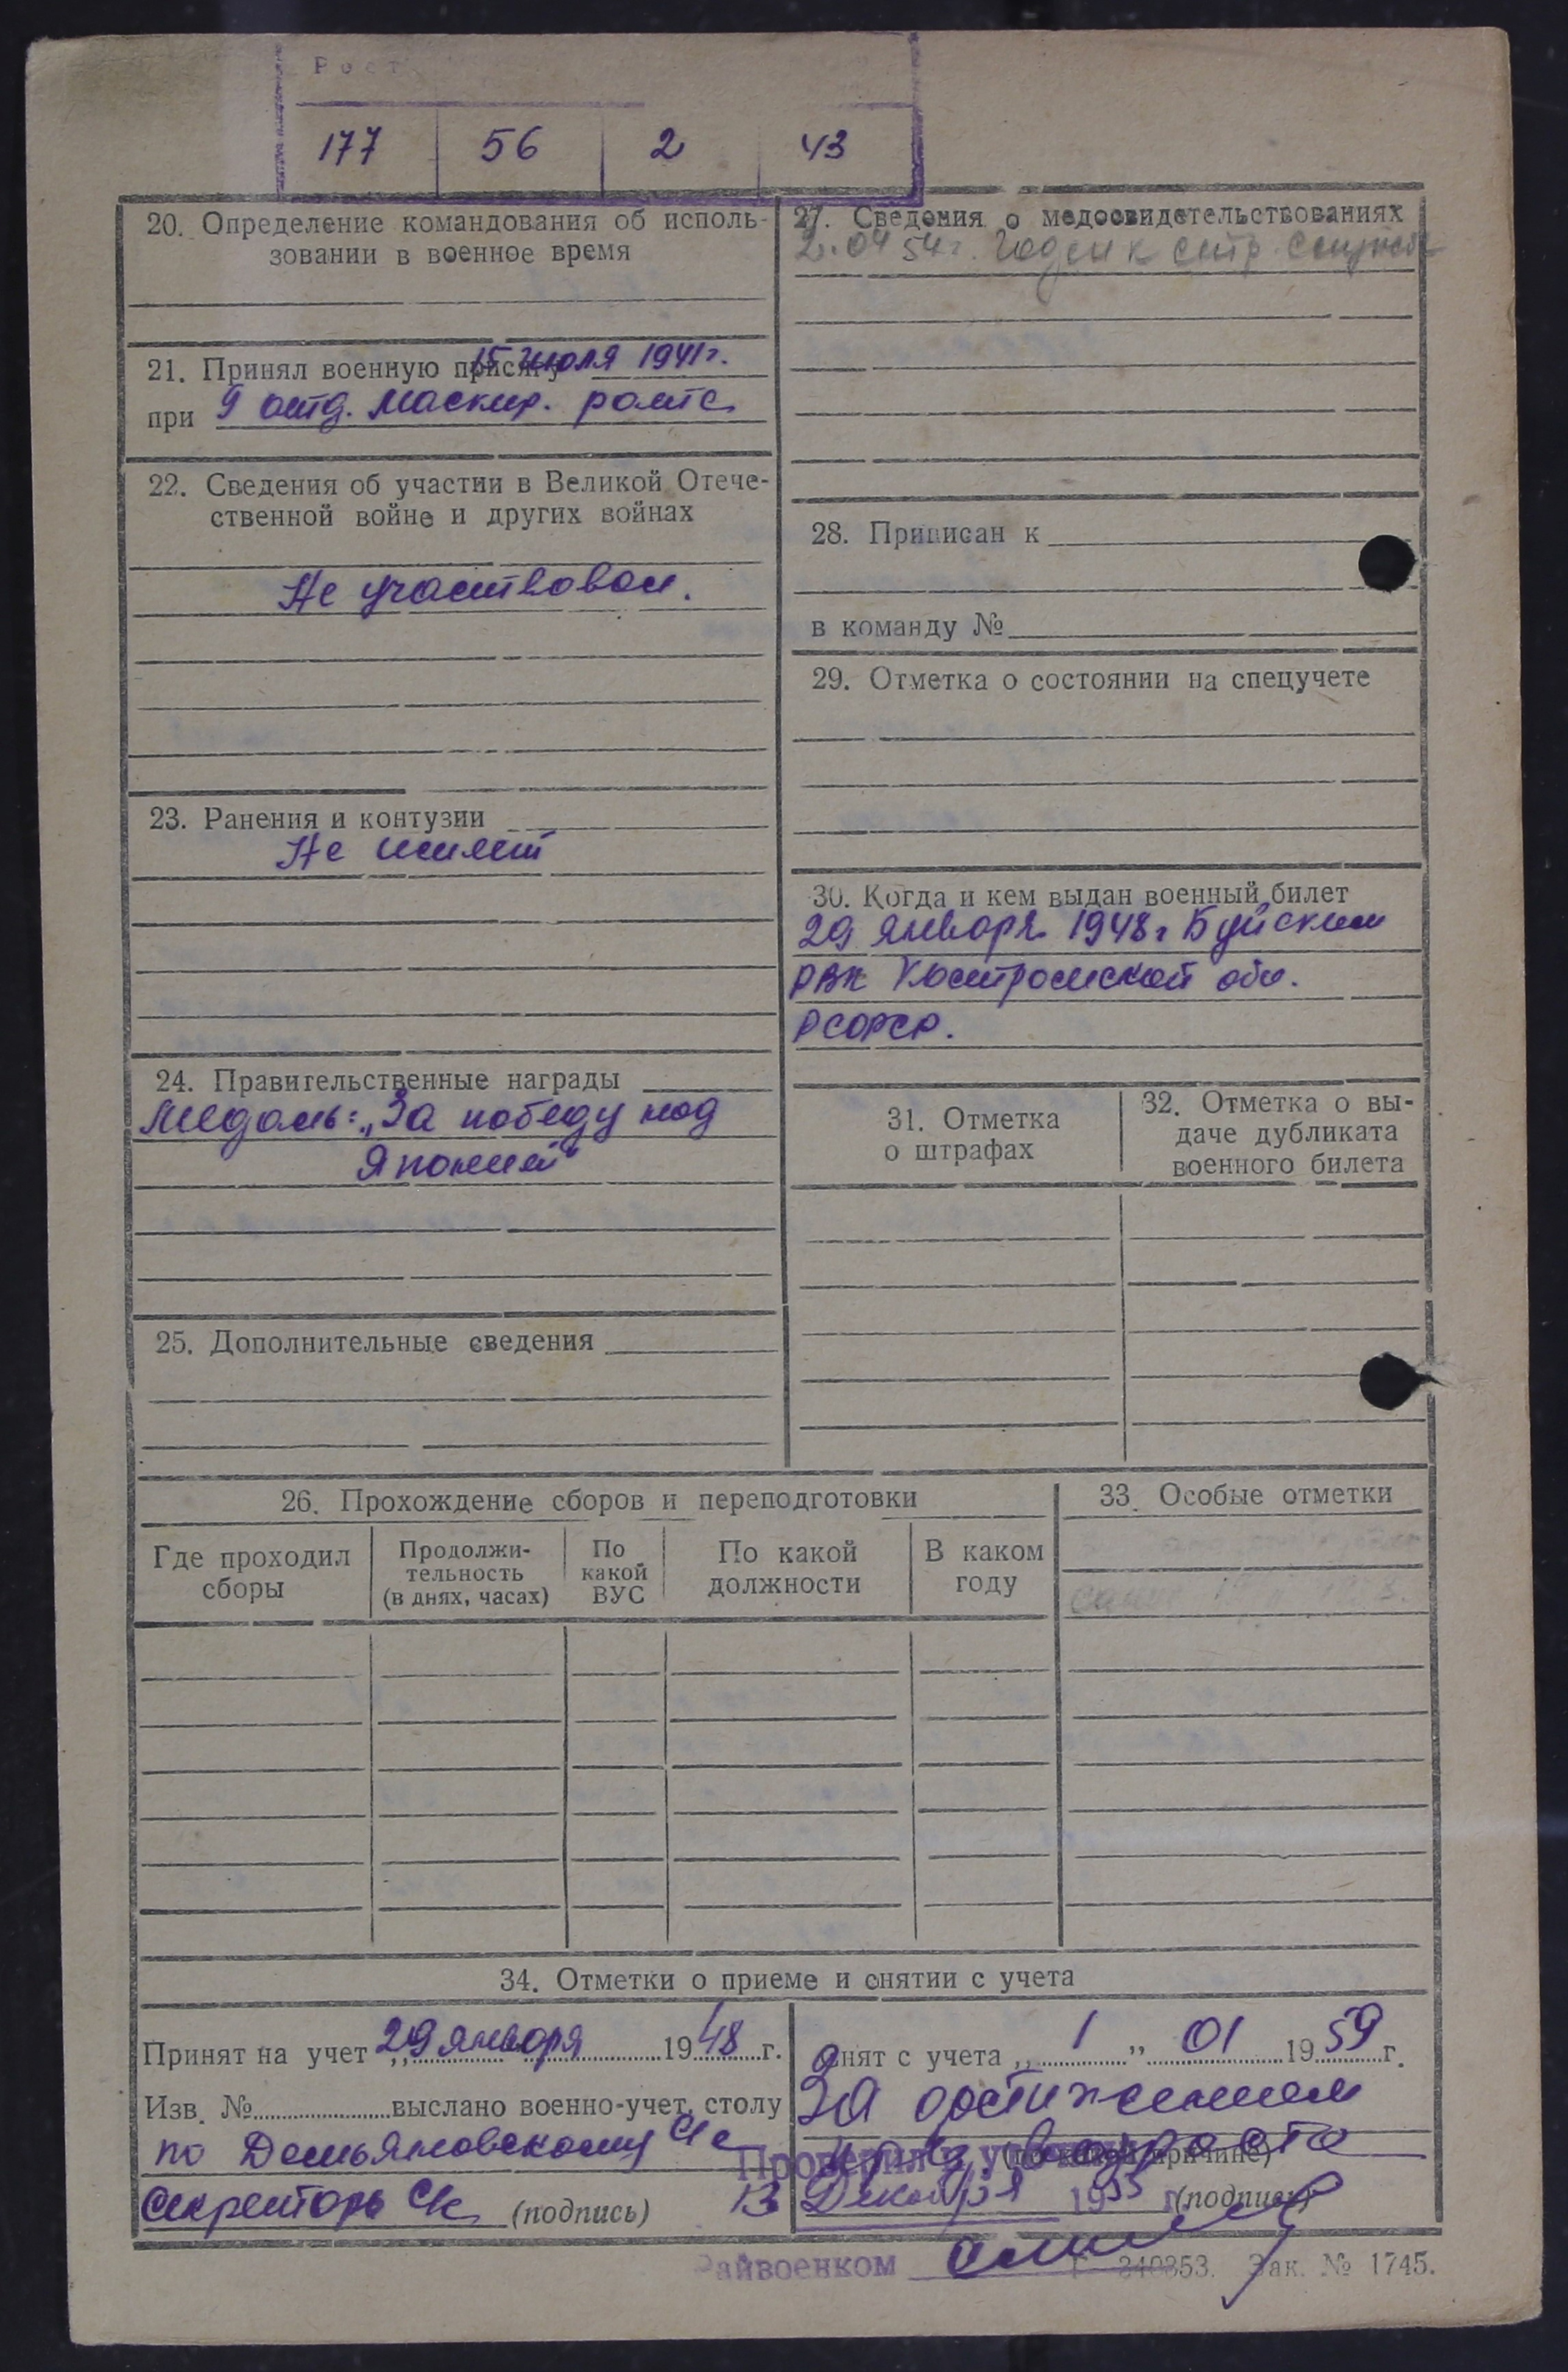 Рост
177 56 2 43
20. Определение командования об исполь-
зовании в военное время
21. Принял военную присягу 15 июля 1941г.
при 9 отд. маскир. роте
22. Сведения об участии в Великой Отече-
ственной войне и других войнах
Не участвовал.
23. Ранения и контузии
Не имеет
24. Правительственные награды
Медаль: „За победу над
Японией"
25. Дополнительные сведения
27. Сведения о медосвидетельствованиях
2.04 54г. Годен к стр. службе
28. Приписан к
в команду №
29. Отметка о состоянии на спецучете
30. Когда и кем выдан военный билет
29 января 1948г Буйским
РВК Костромской обл.
РСФСР.
31. Отметка
о штрафах
32. Отметка о вы-
даче дубликата
военного билета
26. Прохождение сборов и переподготовки
Где проходил
сборы
Продолжи-
тельность
(в днях, часах)
По
какой
ВУС
По какой
должности
В каком
году
33. Особые отметки
34. Отметки о приеме и снятии с учета
Принят на учет „29 января 1948 г.
Изв. № выслано военно-учет. столу
по Демьяновскому С/с
Секретарь С/с (подпись)
Снят с учета „1" 01 1959 г.
За достижением
пред. возраста
(по какой причине)
(подпись)
Проверил с уч
13 Декабря 1955
Райвоенком
Г—840353. Зак. № 1745.